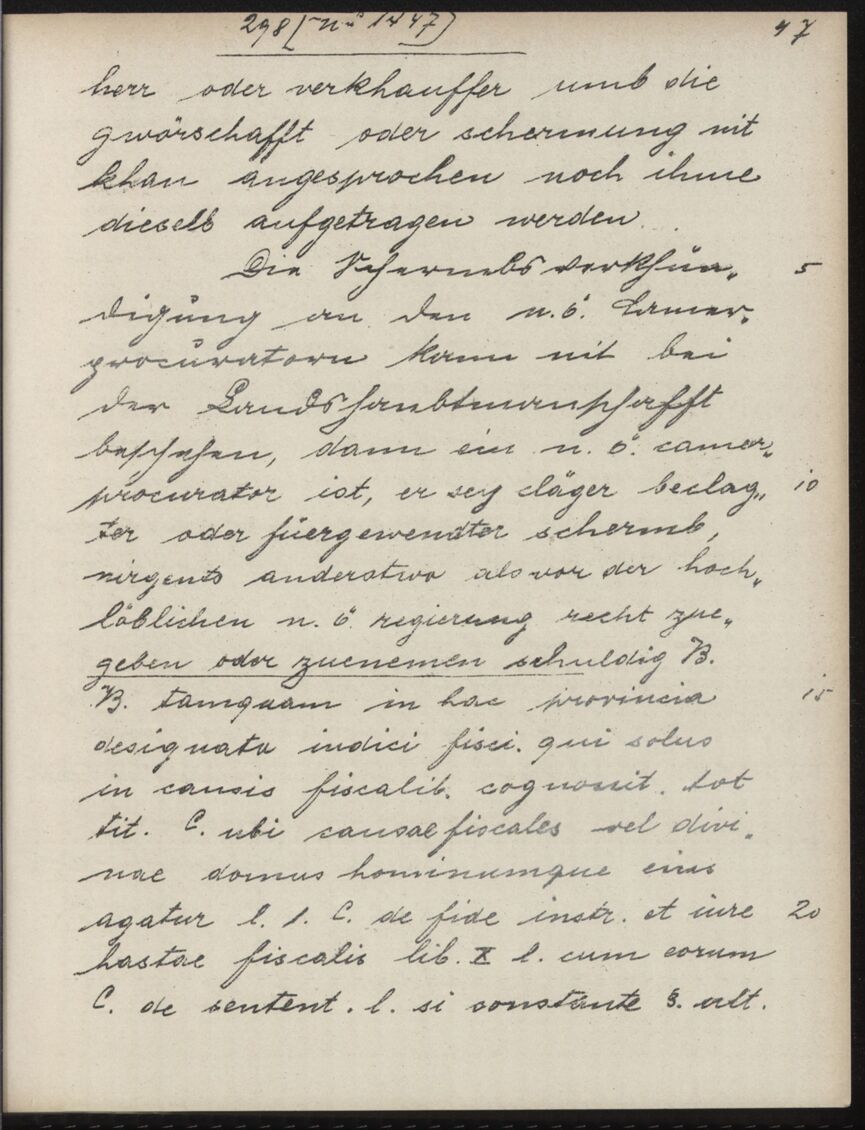 298 [N° 1447) 47
herr oder verkhauffer umb die
gwörschafft oder schermung nit
khan angesprochen noch ihme
dieselb aufgetragen werden.
Die Schermbsverkhün„ 5
digung an den n. ö. Camer„
procuratorn kann nit bei
der Landshaubtmanschafft
beschehen, dann ein n. ö. camer„
procurator ist, er sey cläger beclag„ 10
ter oder füergewendter schermb,
nirgents anderstwo als vor der hoch„
löblichen n. ö. regierung recht zue„
geben oder zuenemen schuldig B.
B. tamquam in hac provincia 15
designato iudici fisci. qui solus
in causis fiscalib. cognossit. tot
tit. C. ubi causae fiscales vel divi„
nae domus hominumque eius
agatur l. 1. C. de fide instr. et iure 20
hastae fiscalis lib. X l. cum eorum
C. de sentent. l. si constante §. ult.